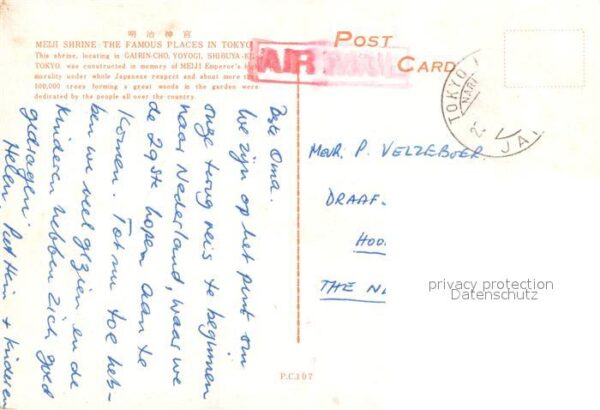 明治神宮
MEIJI SHRINE: THE FAMOUS PLACES IN TOKYO
This shrine, locating in GAIRIN-CHO, YOYOGI, SHIBUYA-KU
TOKYO, was constructed in memory of MEIJI Emperor's
morality under whole Japanese respect and about more
100,000 trees forming a great woods in the garden were
dedicated by the people all over the country.
POST
CARD
AIR MAIL
TOKYO
JA
Beste Oma.
We zijn op het punt om
onze terug reis te beginnen
naar Nederland, waar we
de 29ste hopen aan te
komen. Tot nu toe heb-
ben we veel gezien en de
kinderen hebben zich goed
gedragen.
Helen, Piet Hein + kinderen
Mevr. P. VELZEBOER
DRAAF
HOO
THE N
P.C.107
privacy protection
Datenschutz